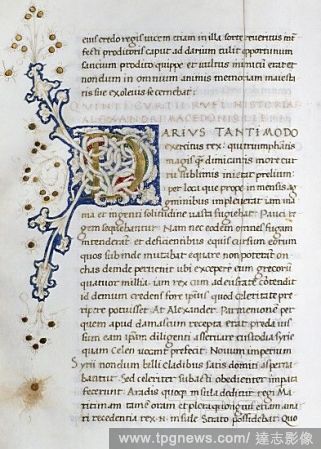 eius credo regis uicem etiam in illa sorte reueritus
festi proditoris caput ad darium tulit opportunum
prodito quippe et uultus inimici erat et
nondum in omnium animis memoriam maiesta
tis sue exoleuis se cernebat:
QVINTI CVRTII RVFI HISTORIAS
ALEXANDRI MACEDONIS LIB
DARIVS TANTI MODO
exercitus rex: qui triumphantis
magis q̃ dimicantis more cur
ru sublimis inierat prelium:
per loca que prope immensis ag
minibus impleuerat iam ina
nia et ingenti solitudine uasta fugiebat: Pauci re
gem sequebantur Nam nec eodem omnes fugam
intenderat et deficientibus equis cursum eorum
quos subinde mutabat equare non poterant
chas deinde peruenit ubi excepere eum grecorū
quatuor millia: iam rex cum ad eufratē contendit
id demum credens fore ipsius quod celeritate pre
ripere potuisset. At Alexander. Parmenionē per
quem apud damascum recepta erat preda ius
sum eam ipsam diligenti asseruare custodia syrie
quam Celen uocant prefecit: Nouum imperium
Syrii nondum belli cladibus satis domiti asperna
bantur. Sed celeriter subacti obedienter impata
fecerunt. Aradis quoque insula deditur regi Ma
ritimam tamē oram et pleraque longius etiam a mari
recedentia rex in insule Strato possidebat: Quo
www.tpgnews.com / 達志影像